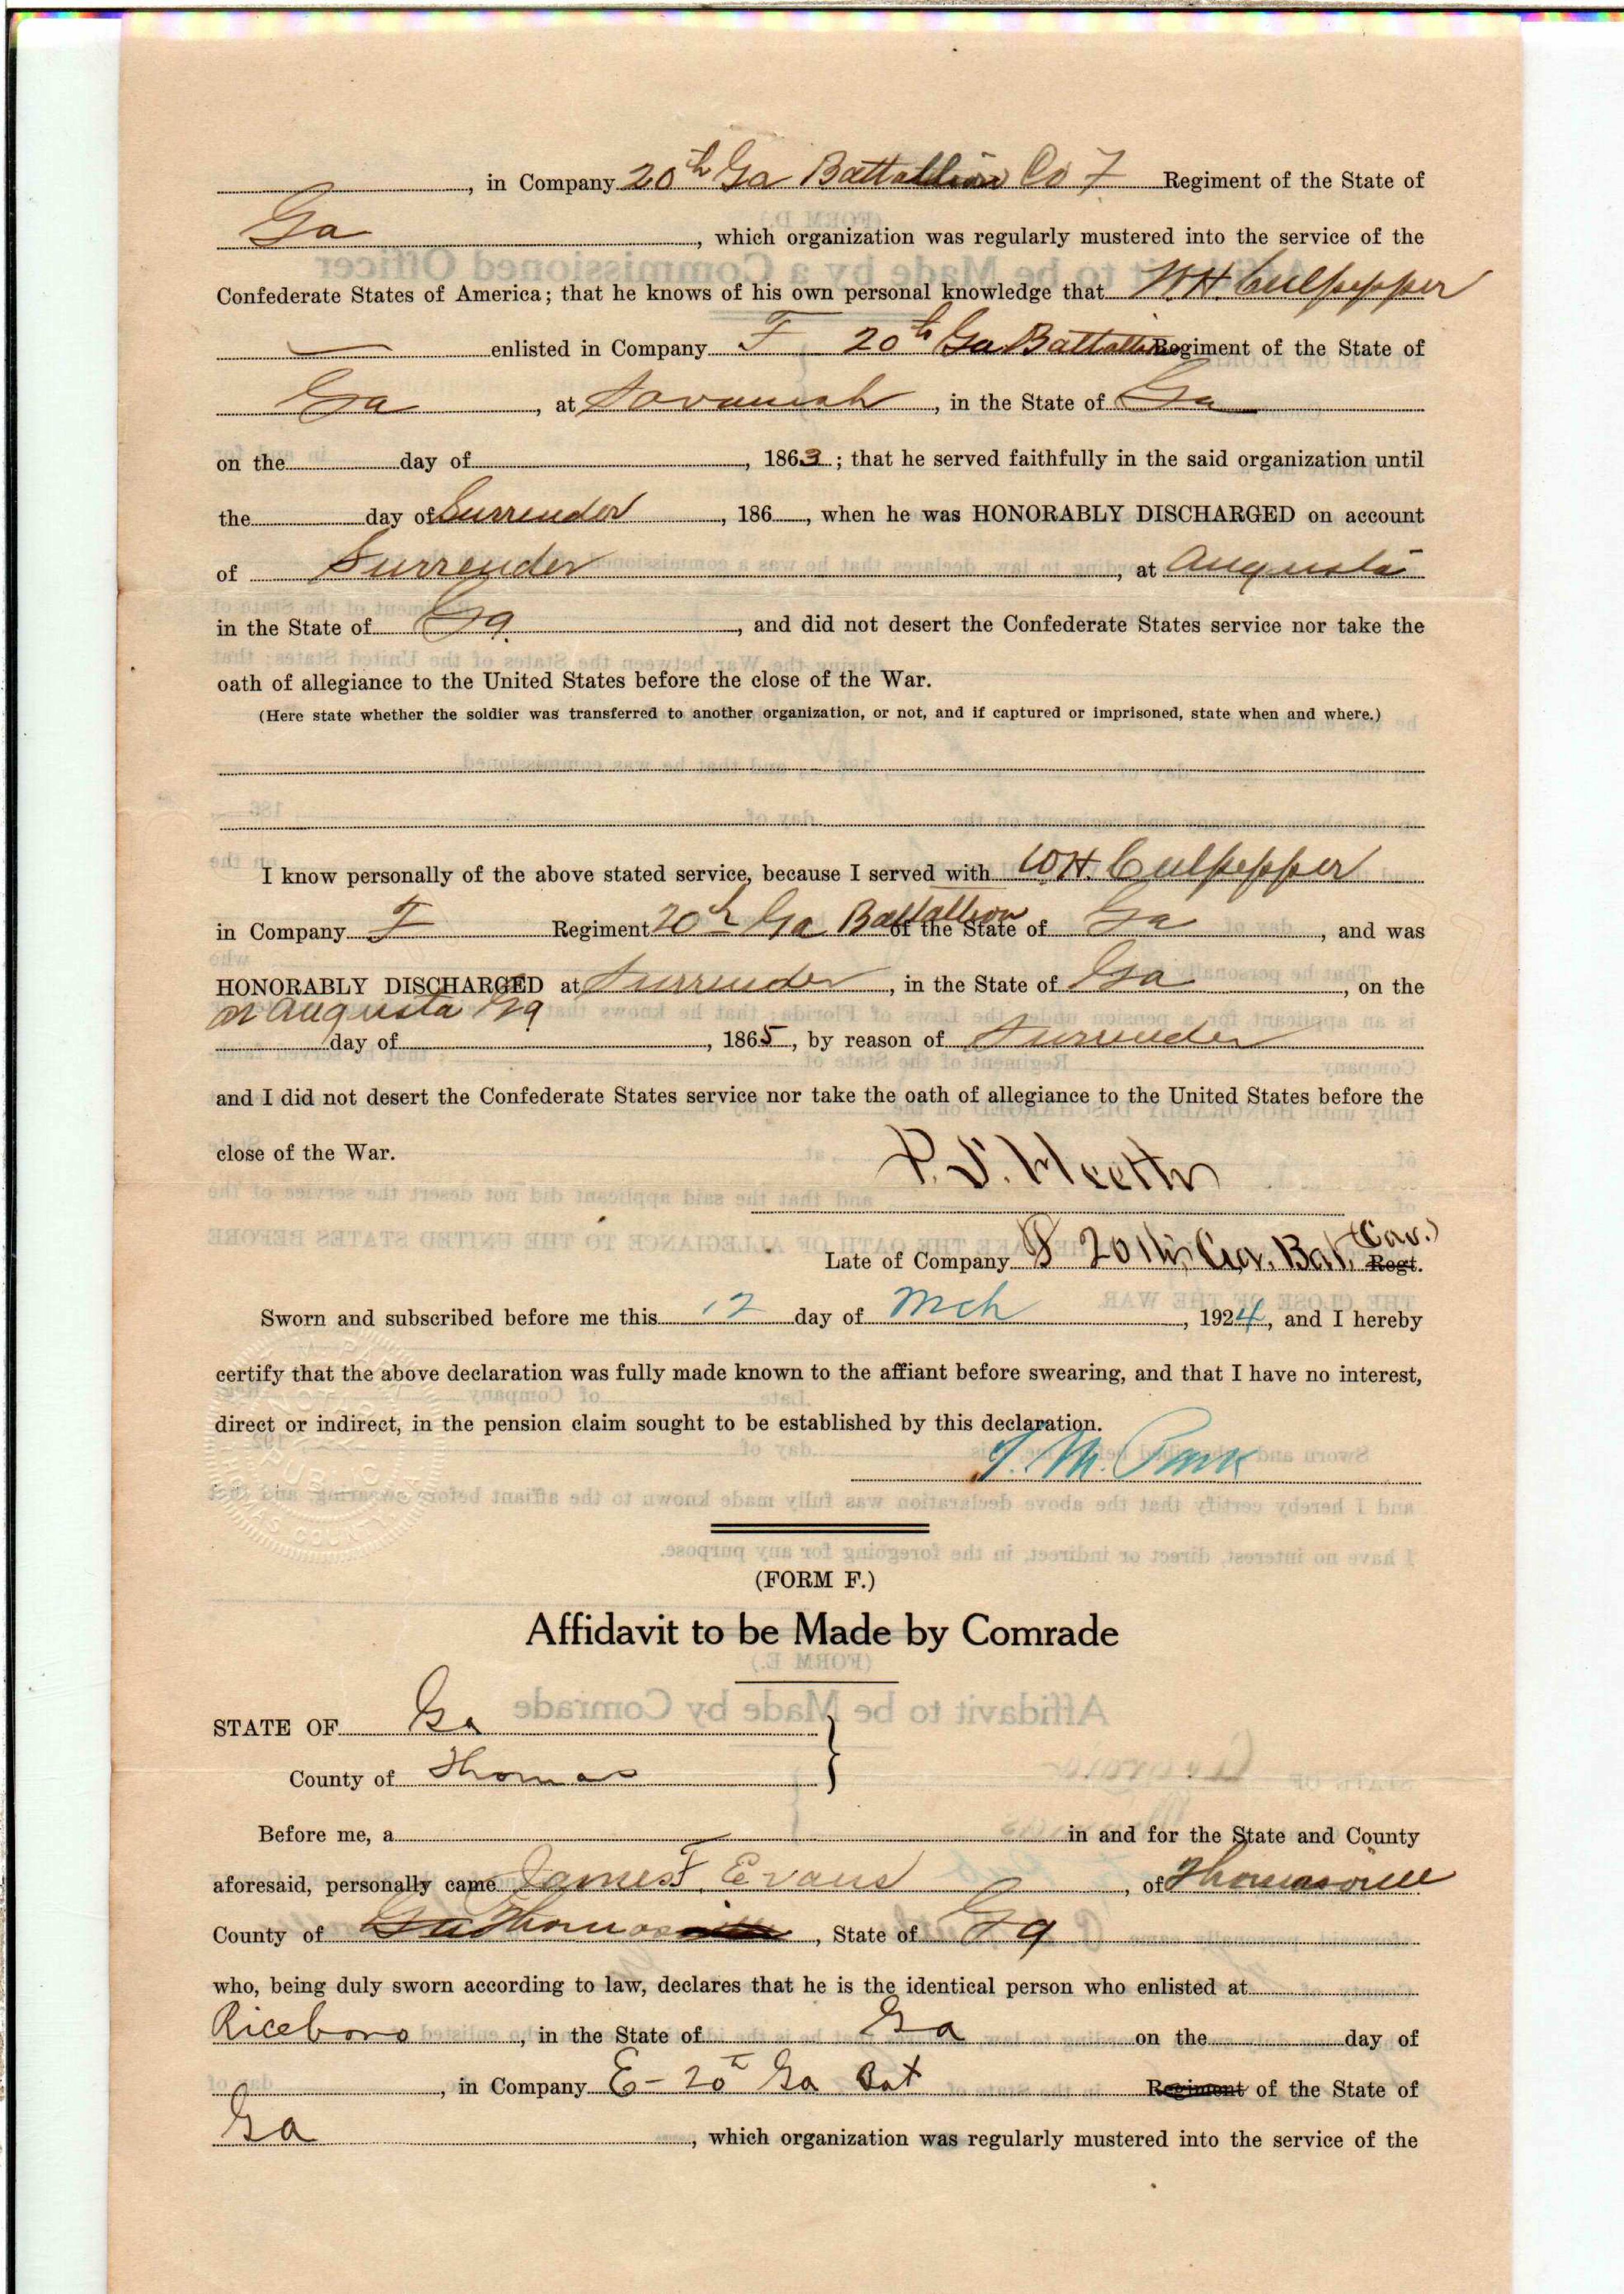 , in Company 20th Ga Battallion Co F Regiment of the State of
Ga, which organization was regularly mustered into the service of the
Confederate States of America; that he knows of his own personal knowledge that W.H. Culpepper
enlisted in Company F 20th Ga Battallion Regiment of the State of
Ga, at Savannah, in the State of Ga
on the day of , 1863; that he served faithfully in the said organization until
the day of Surrender, 186 , when he was HONORABLY DISCHARGED on account
of Surrender, at Augusta
in the State of Ga, and did not desert the Confederate States service nor take the
oath of allegiance to the United States before the close of the War.
(Here state whether the soldier was transferred to another organization, or not, and if captured or imprisoned, state when and where.)
I know personally of the above stated service, because I served with W.H. Culpepper
in Company F Regiment 20th Ga Battallion of the State of Ga, and was
HONORABLY DISCHARGED at Surrender, in the State of Ga, on the
at Augusta Ga
day of , 1865, by reason of Surrender
and I did not desert the Confederate States service nor take the oath of allegiance to the United States before the
close of the War.
P.S.
Late of Company F 20th Ga. Bat. (Cav.) Regt.
Sworn and subscribed before me this 12 day of Mch, 1924, and I hereby
certify that the above declaration was fully made known to the affiant before swearing, and that I have no interest,
direct or indirect, in the pension claim sought to be established by this declaration.
T. M.
(FORM F.)
Affidavit to be Made by Comrade
STATE OF Ga
County of Thomas
Before me, a in and for the State and County
aforesaid, personally came James F. Evans, of Thomasville
County of Thomas, State of Ga
who, being duly sworn according to law, declares that he is the identical person who enlisted at
Riceboro, in the State of Ga on the day of
, in Company E - 20th Ga Bat Regiment of the State of
Ga, which organization was regularly mustered into the service of the